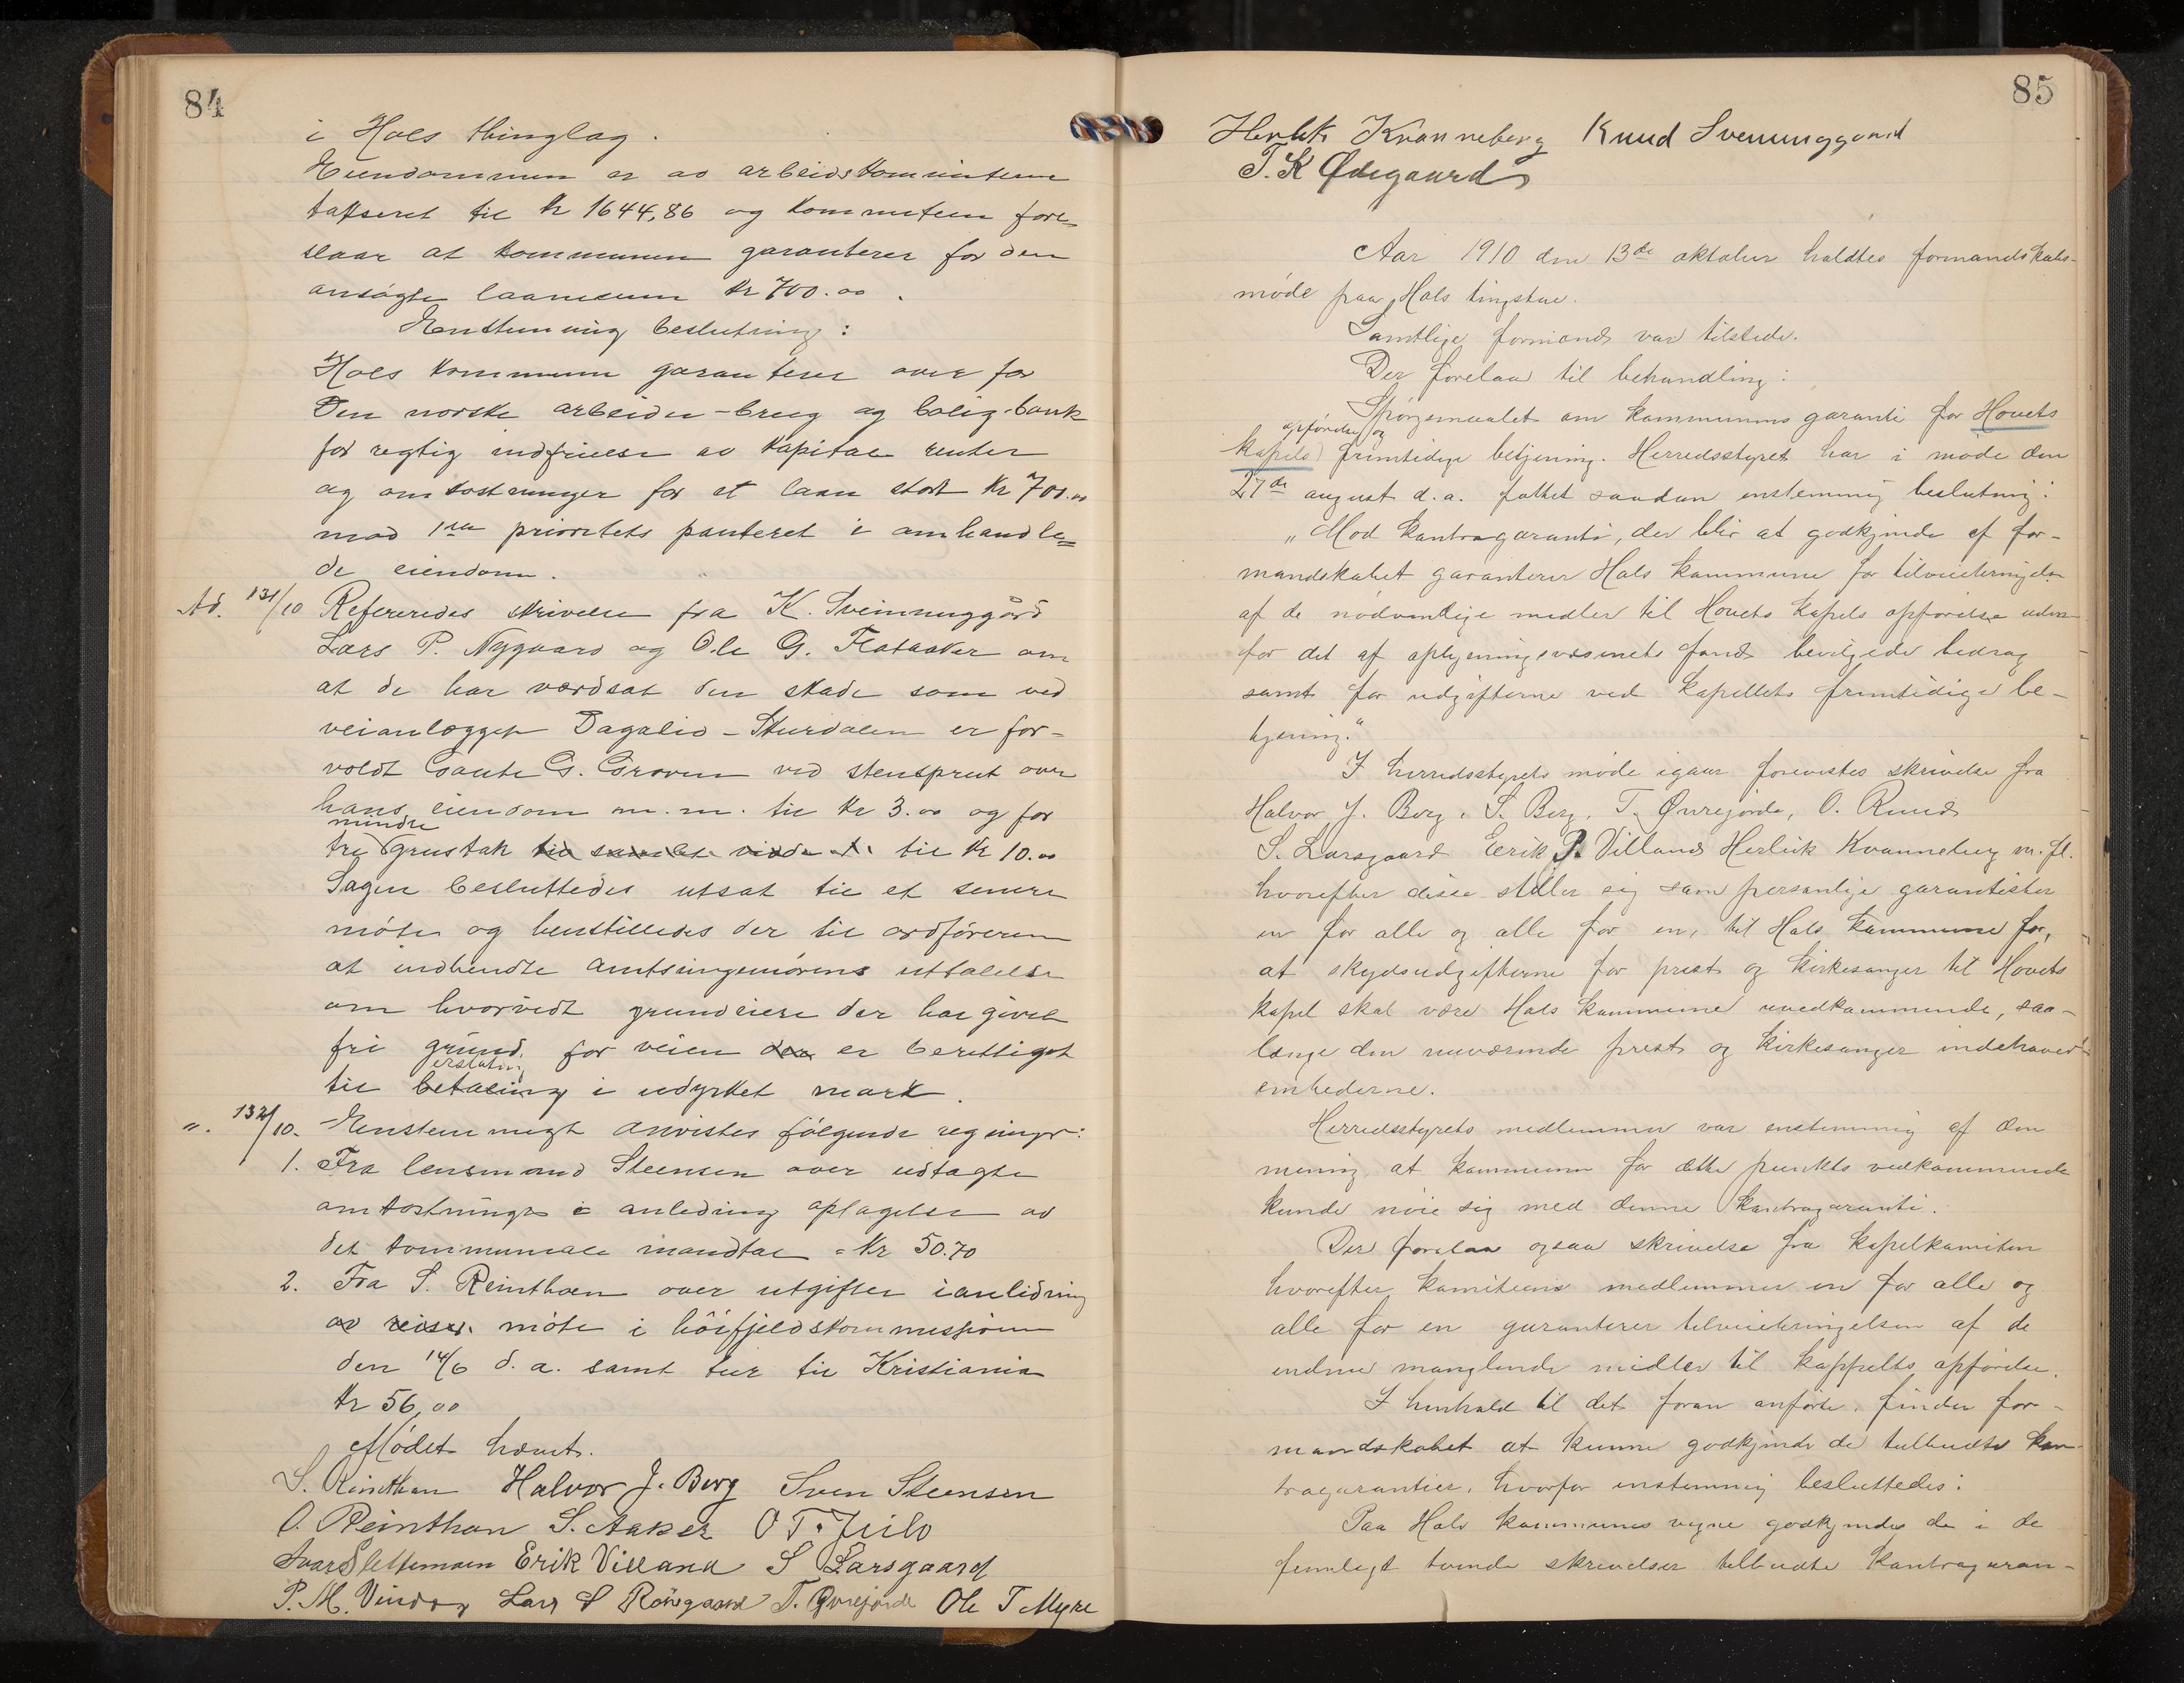 84
i Hols thinglag.
Eiendommen er av arbeidskommiteen
takseret til kr 1644,86 og kommiteen fore-
slaar at kommunen garanterer for den
ansøgte laanesum kr 700.00.
Enstemmig beslutning:
Hols kommune garanterer over for
Den norske arbeider-brug og bolig-bank
for regtig indfrielse av kapital renter
og omkostninger for et laan stort kr 700.00
mod 1ste prioritets panteret i omhandle=
de eiendom.
Ad. 131/10 Refereredes skrivelse fra K. Sveinunggård
Lars P. Nygaard og Ole G. Flataaker om
at de har værdsat den skade som ved
veianlægget Dagalid - Skurdalen er for-
voldt Gaute G. Groven ved stensprut over
hans eiendom m.m. til kr 3.00 og for
mindre
tre grustak til kr 10.00
Sagen besluttedes utsat til et senere
møte og henstilledes der til ordføreren
at indhendte amtsingeniørens uttalelse
om hvorvidt grundeiere der har givet
fri grund for veien er berettiget
erstatning
til betaling i udyrket mark.
". 132/10. Enstemmigt anvistes følgende regninger:
1. Fra lensmand Steensen over udlagte
omkostninger i anledning optagelse av
det kommunale mandtal = kr 50.70
2. Fra S. Reinthon over utgifter i anledning
av reise, møte i høifjeldskommissionen
den 14/6 d. a. samt tur til Kristiania
kr 56,00
Mødet hævet.
S. Reinthon Halvor J. Berg Sven Steensen
O. Reinton S. Aaker O T. Juilo
Ivar Slettemoen Erik Villand S Larsgaard
P. M. Vindeg Lars S Röisgaard T. Øvrejorde Ole T Myre
85
Herleik Kvanneberg Knud Sveinunggaard
T. K Ødegaard
Aar 1910 den 13de oktober holdtes formandskabs-
møde paa Hols tingstue.
Samtlige formænd var tilstede.
Der forelaa til behandling:
Spørgsmaalet om kommunens garanti for Hovets
opførelse og
kapels fremtidige betjening. Herredsstyret har i møde den
27de august d.a. fattet saadan enstemmig beslutning:
"Mod kontragaranti, der blir at godkjende af for-
mandskabet garanterer Hols kommune for tilveiebringelsen
af de nødvendige midler til Hovets kapels opførelse uden-
for det af oplysningsvæsenets fond bevilgede bedrag
samt for udgifterne ved kapellets fremtidige be-
tjening."
I herredsstyrets møde igaar forevistes skrivelse fra
Halvor J. Berg, S. Berg, T. Øvrejorde, O. Ruud
S. Larsgaard Eerik P. Villand Herleik Kvanneberg m.fl.
hvorefter disse stiller sig som personlige garantister
en for alle og alle for en, til Hols kommune for,
at skydsudgifterne for prest og kirkesanger til Hovets
kapel skal være Hols kommune uvedkommende, saa-
længe den nuværende prest og kirkesanger indehaver
embederne.
Herredsstyrets medlemmer var enstemmig af den
mening at kommunen for dette punkts vedkommende
kunde nøie sig med denne kontragaranti.
Der forelaa ogsaa skrivelse fra kapelkomiteen
hvorefter komiteens medlemmer en for alle og
alle for en garanterer tilveiebringelsen af de
endnu manglende midler til kappelts opførelse.
I henhold til det foran anførte, finder for-
mandskabet at kunne godkjende de tilbudte kon-
tragarantier, hvorfor enstemmig besluttedes:
Paa Hols kommunes vegne godkjendes de i de
fremlagt tvende skrivelser tilbudte kontragaran-